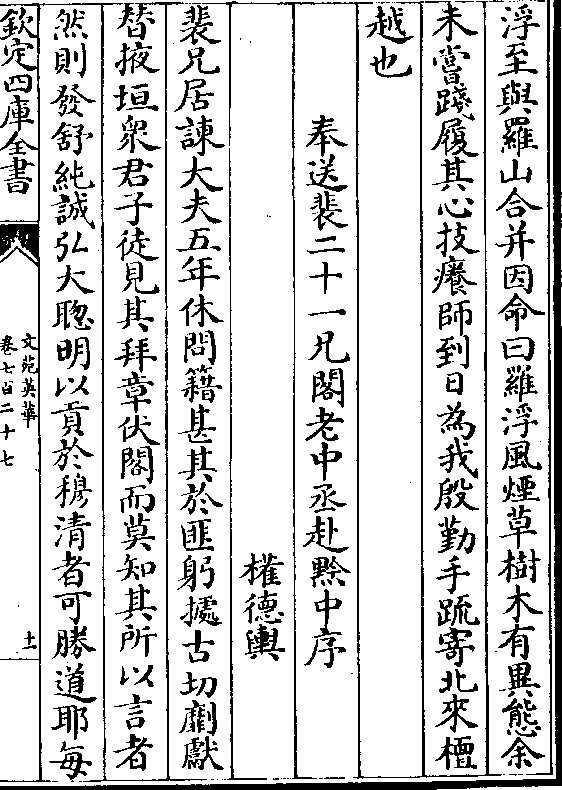 浮至與羅山合并因命曰羅浮風煙草樹木有異態余
未嘗踐履其心技癢師到日為我殷勤手疏寄北來檀
越也
奉送裴二十一兄閣老中丞赴黔中序
權德輿
裴兄居諫大夫五年休問籍甚其於匪躬據古切劘獻
替掖垣衆君子徒見其拜章伏閤而莫知其所以言者
然則發舒純誠弘大聰明以貢於穆清者可勝道耶每
欽定四庫全書
文苑英華
卷七百二十七
十一